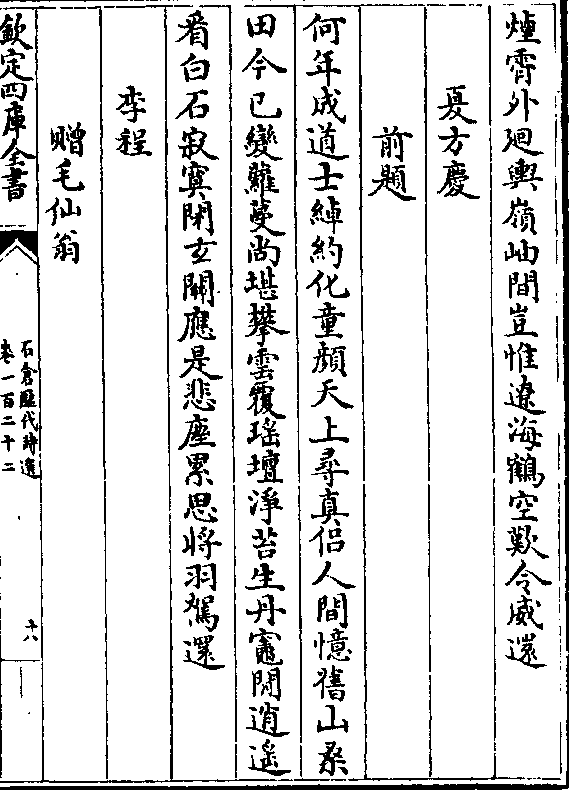 煙霄外廻輿嶺岫間豈惟遼海鶴空歎令威還
夏方慶
前題
何年成道士綽約化童顔天上尋真侣人間憶舊山桑
田今已變蘿蔓尚堪攀雲覆瑶壇淨苔生丹竈閒逍遥
看白石寂寞閉玄關應是悲塵累思將羽駕還
李程
贈毛仙翁
欽定四庫全書
石倉歴代詩選
卷一百二十二
十八